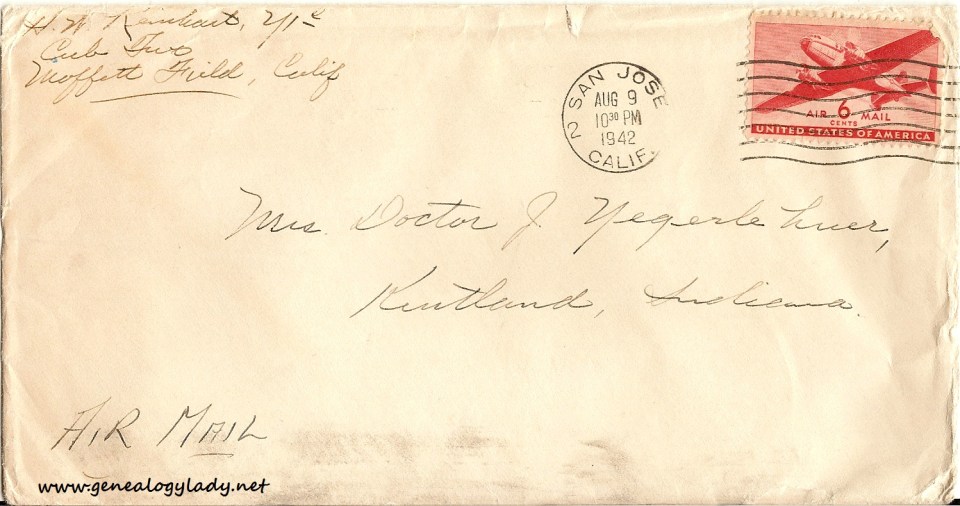 H. W. Reinhart, Y/1c
Cub Two
Moffett Field, Calif
SAN JOSE
AUG 9
10 30 PM
1942
2
CALIF.
AIR 6 MAIL
CENTS
UNITED STATES OF AMERICA
Mrs. Doctor J Yegerlehner,
Kentland, Indiana.
AIR MAIL
www.genealogylady.net